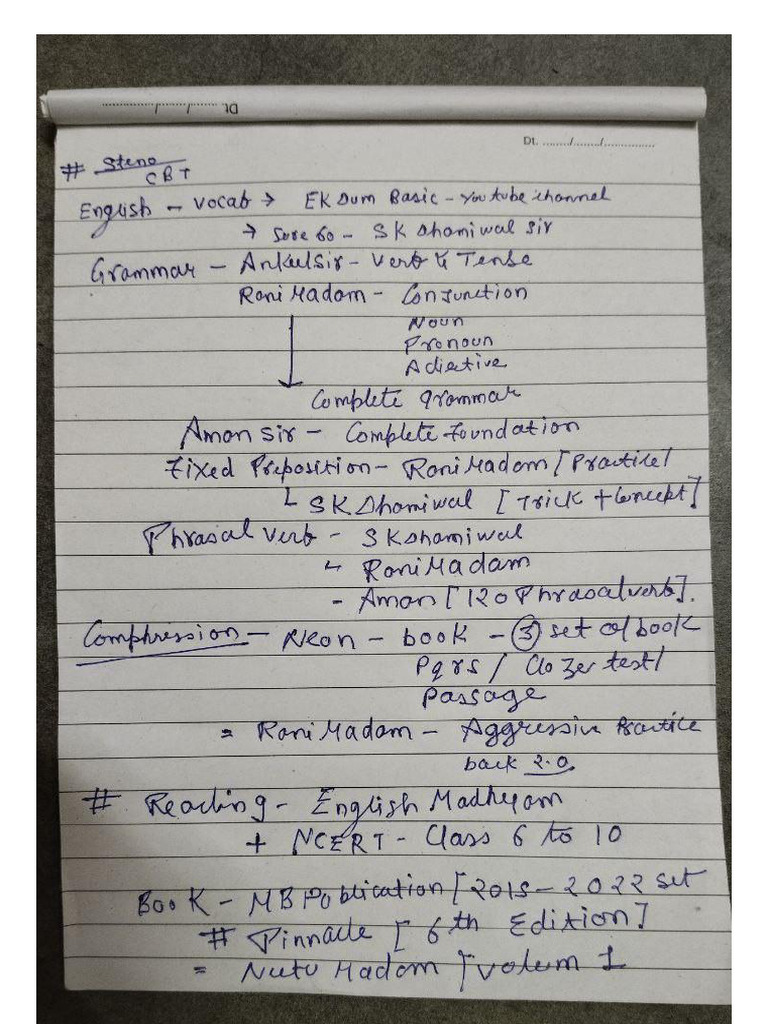 Dt. ......./......./..............
Dt. ......./......./..............
# Steno
CBT
English - Vocab → EK Dum Basic - Youtube channel
→ Sure 60 - SK Dhaniwal Sir
Grammar - Ankul Sir - Verb & Tense
Rani Madam - Conjunction
Noun
Pronoun
Adjective
Complete grammar
Aman Sir - Complete Foundation
Fixed Preposition - Rani Madam [Practice]
SK Dhaniwal [Trick + Concept]
Phrasal Verb - SK Dhaniwal
Rani Madam
- Aman [120 Phrasal verb].
Comphression - Neon - book - 3 set of book
Pqrs / Clozer test /
Passage
= Rani Madam - Aggressive Practice
back 2.0
# Reading - English Madhyam
+ NCERT - Class 6 to 10
Book - MB Publication [2015 - 2022 set
# Pinnacle [6th Edition]
= Neetu Madam [Volum 1